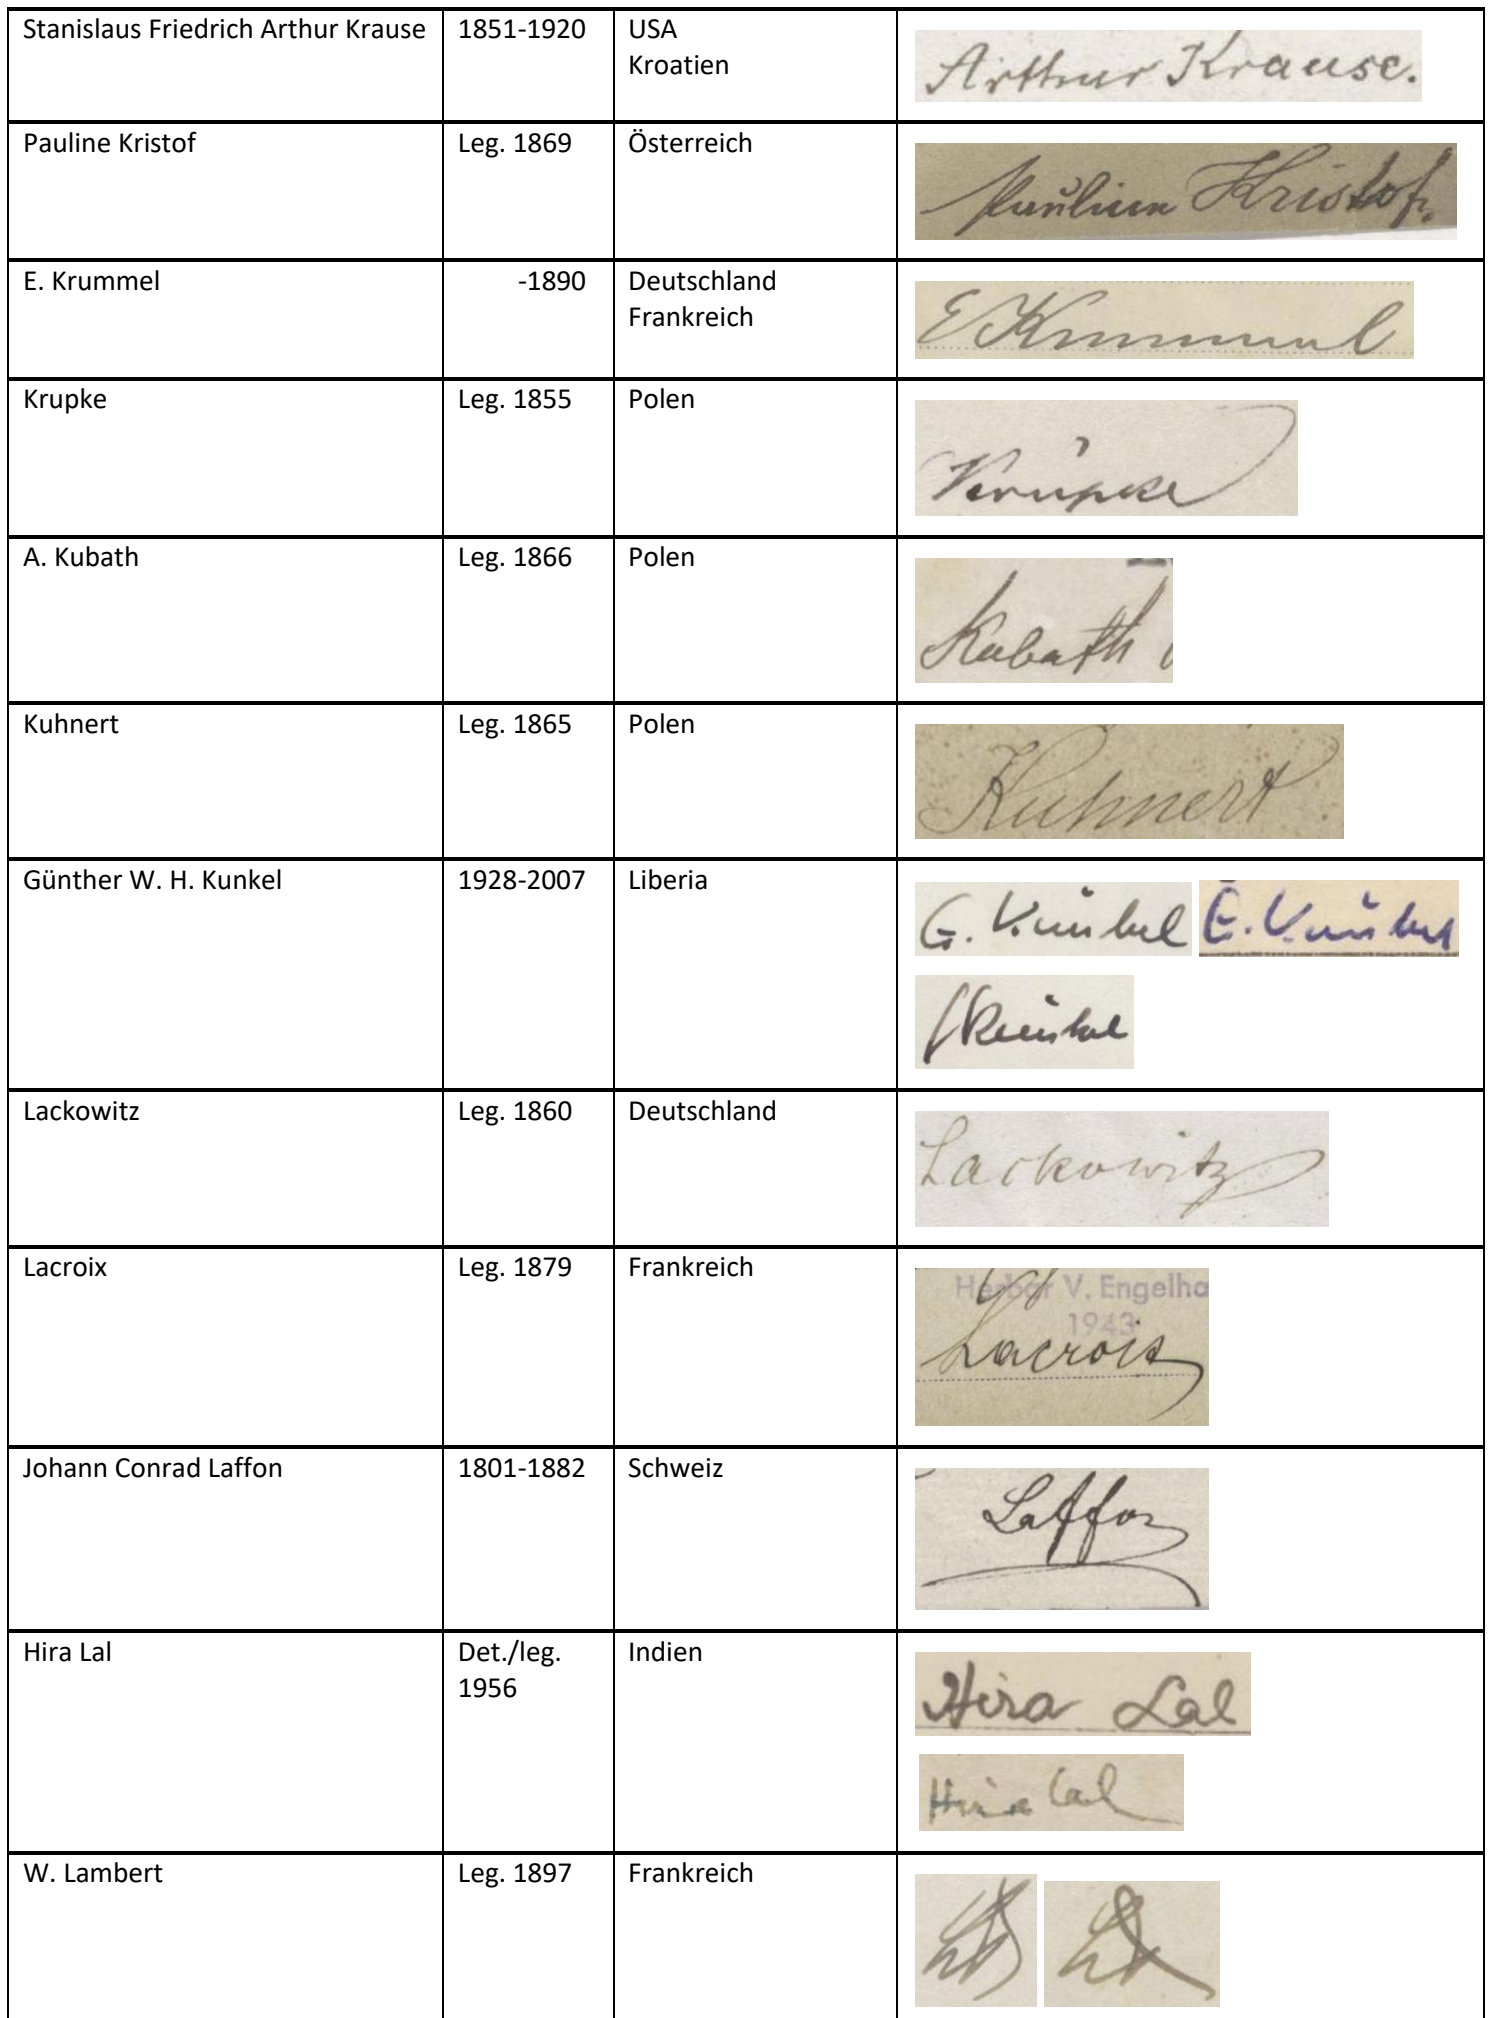 Stanislaus Friedrich Arthur Krause 1851-1920 USA
Kroatien
Arthur Krause.
Pauline Kristof Leg. 1869 Österreich
Pauline Kristof.
E. Krummel -1890 Deutschland
Frankreich
E Krummel
Krupke Leg. 1855 Polen
Krupke
A. Kubath Leg. 1866 Polen
Kabath
Kuhnert Leg. 1865 Polen
Kuhnert
Günther W. H. Kunkel 1928-2007 Liberia
G. Kunkel
Kunkel
Kunkel
Lackowitz Leg. 1860 Deutschland
Lackowitz
Lacroix Leg. 1879 Frankreich
Herbar V. Engelha
1943
Lacroix
Johann Conrad Laffon 1801-1882 Schweiz
Laffon
Hira Lal Det./leg. Indien
1956
Hira Lal
Hira Lal
W. Lambert Leg. 1897 Frankreich